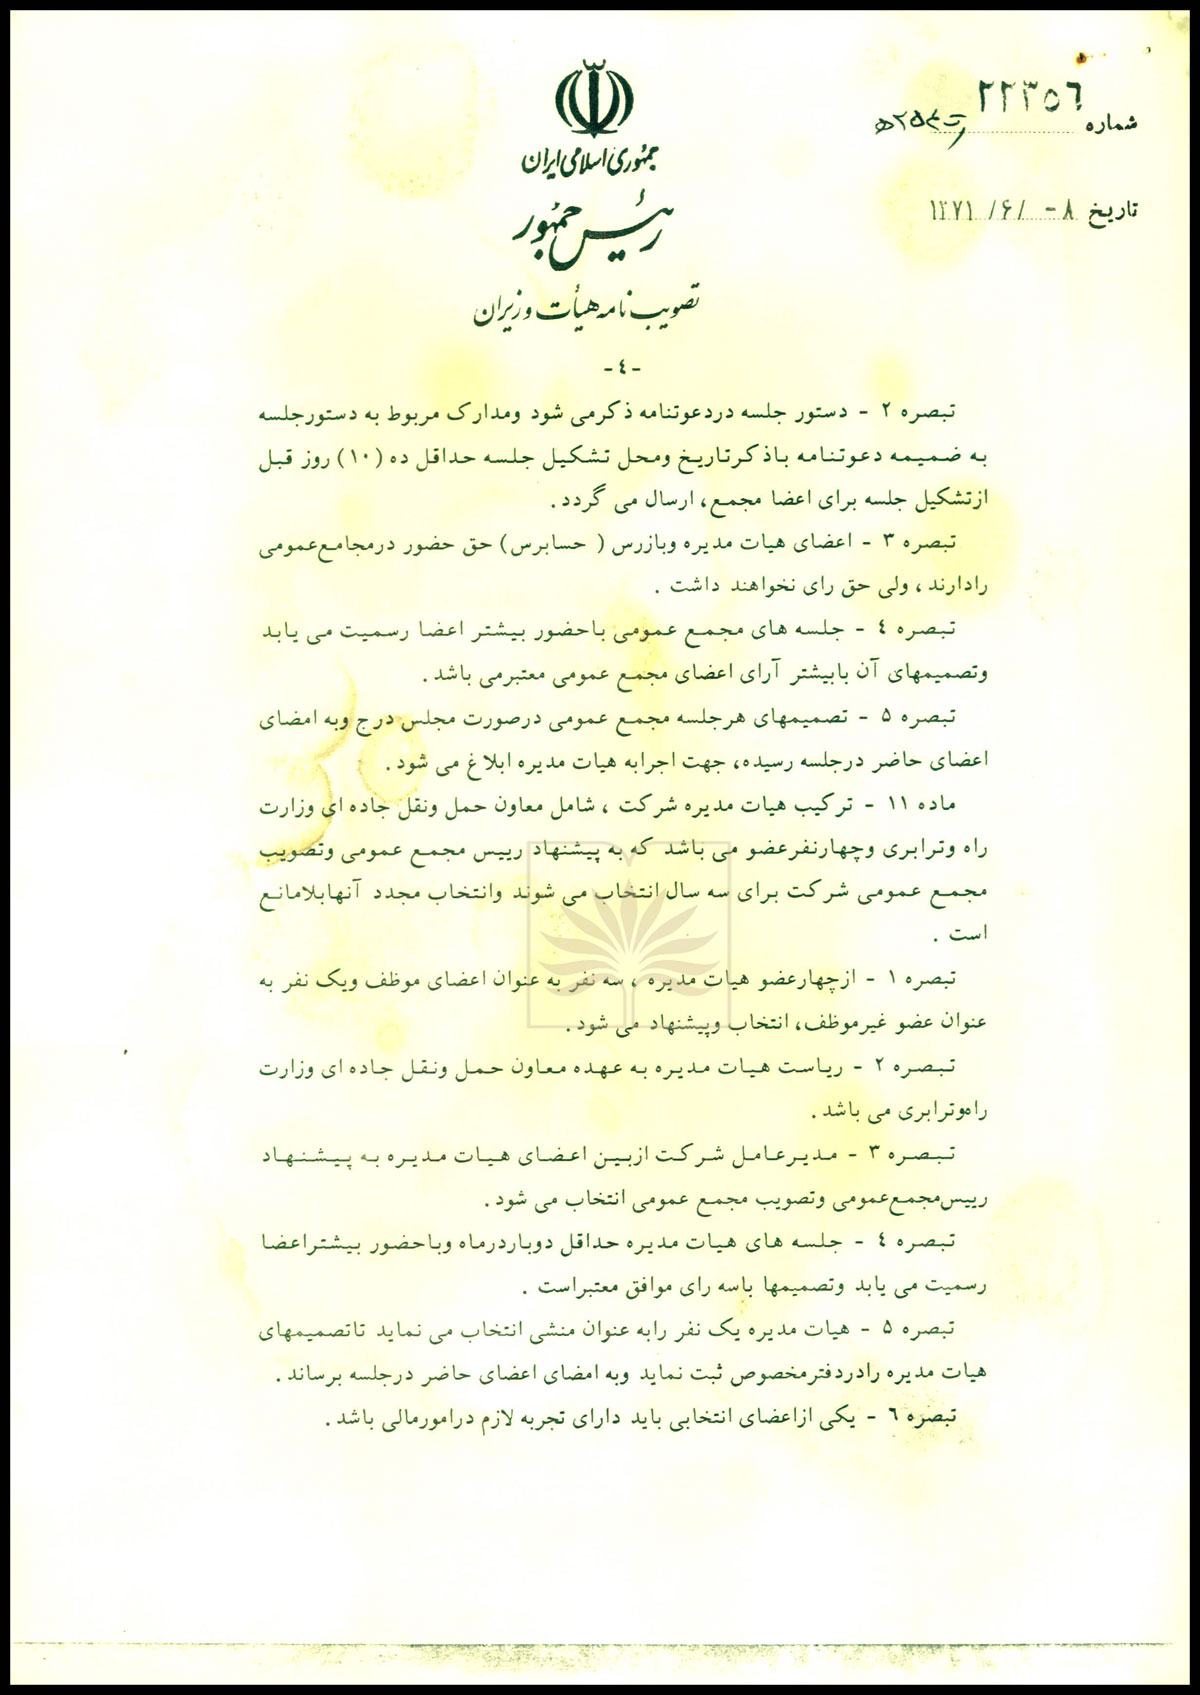 جمهوری اسلامی ایران
رئیس جمهور
تصویب نامه هیأت وزیران
شماره ۲۲۳۵۶
تاریخ ۸ - /۶/ ۱۳۷۱
-٤-
تبصره ۲ - دستور جلسه دردعوتنامه ذکرمی شود ومدارک مربوط به دستورجلسه
به ضمیمه دعوتنامه باذکرتاریخ ومحل تشکیل جلسه حداقل ده (۱۰) روز قبل
ازتشکیل جلسه برای اعضا مجمع، ارسال می گردد.
تبصره ۳ - اعضای هیات مدیره وبازرس ( حسابرس) حق حضور درمجامع‌عمومی
رادارند ، ولی حق رای نخواهند داشت .
تبصره ٤ - جلسه های مجمع عمومی باحضور بیشتر اعضا رسمیت می یابد
وتصمیمهای آن بابیشتر آرای اعضای مجمع عمومی معتبرمی باشد.
تبصره ۵ - تصمیمهای هرجلسه مجمع عمومی درصورت مجلس درج وبه امضای
اعضای حاضر درجلسه رسیده، جهت اجرابه هیات مدیره ابلاغ می شود.
ماده ۱۱ - ترکیب هیات مدیره شرکت ، شامل معاون حمل ونقل جاده ای وزارت
راه وترابری وچهارنفرعضو می باشد که به پیشنهاد رییس مجمع عمومی وتصویب
مجمع عمومی شرکت برای سه سال انتخاب می شوند وانتخاب مجدد آنهابلامانع
است .
تبصره ۱ - ازچهارعضو هیات مدیره ، سه نفر به عنوان اعضای موظف ویک نفر به
عنوان عضو غیرموظف، انتخاب وپیشنهاد می شود.
تبصره ۲ - ریاست هیات مدیره به عهده معاون حمل ونقل جاده ای وزارت
راه‌وترابری می باشد.
تبصره ۳ - مدیرعامل شرکت ازبین اعضای هیات مدیره به پیشنهاد
رییس‌مجمع‌عمومی وتصویب مجمع عمومی انتخاب می شود.
تبصره ٤ - جلسه های هیات مدیره حداقل دوباردرماه وباحضور بیشتراعضا
رسمیت می یابد وتصمیمها باسه رای موافق معتبراست .
تبصره ۵ - هیات مدیره یک نفر رابه عنوان منشی انتخاب می نماید تاتصمیمهای
هیات مدیره رادردفترمخصوص ثبت نماید وبه امضای اعضای حاضر درجلسه برساند.
تبصره ٦ - یکی ازاعضای انتخابی باید دارای تجربه لازم درامورمالی باشد.